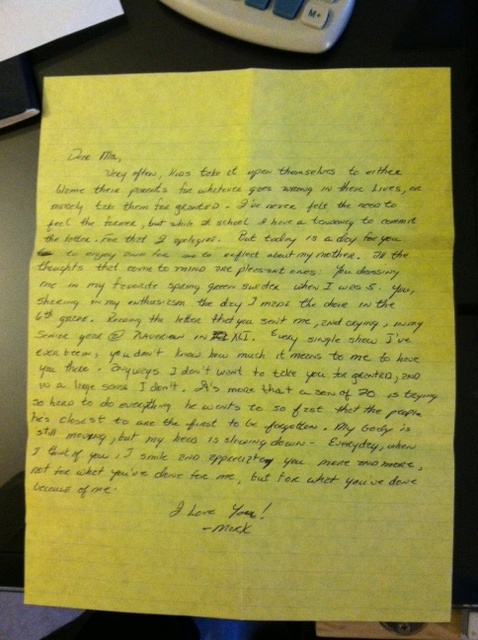 M+
Dear Ma,
Very often, kids take it upon themselves to either
blame their parents for whatever goes wrong in there lives, or
merely take them for granted. I've never felt the need to
feel the former, but while at school I have a tendency to commit
the latter. For that I apologize. But today is a day for you
to enjoy and for me to reflect about my mother. All the
thoughts that come to mind are pleasent ones: You dressing
me in my favorite spring green sweater when I was 5. You,
sharing in my enthusiasm the day I made the choir in the
6th grade. Reading the letter that you sent me, and crying, in my
senior year @ in XLI. Every single show I've
ever been in, you don't know how much it means to me to have
you there. Anyways I don't want to take you for granted, and
in a large sense I don't. It's more that a son of 20 is trying
so hard to do everything he wants to so fast that the people
he's closest to are the first to be forgotten. My body is
still moving, but my head is slowing down - Everyday, when
I think of you, I smile and appreciate you more and more,
not for what you've done for me, but for what you've done
because of me.
I Love You!
-Mark